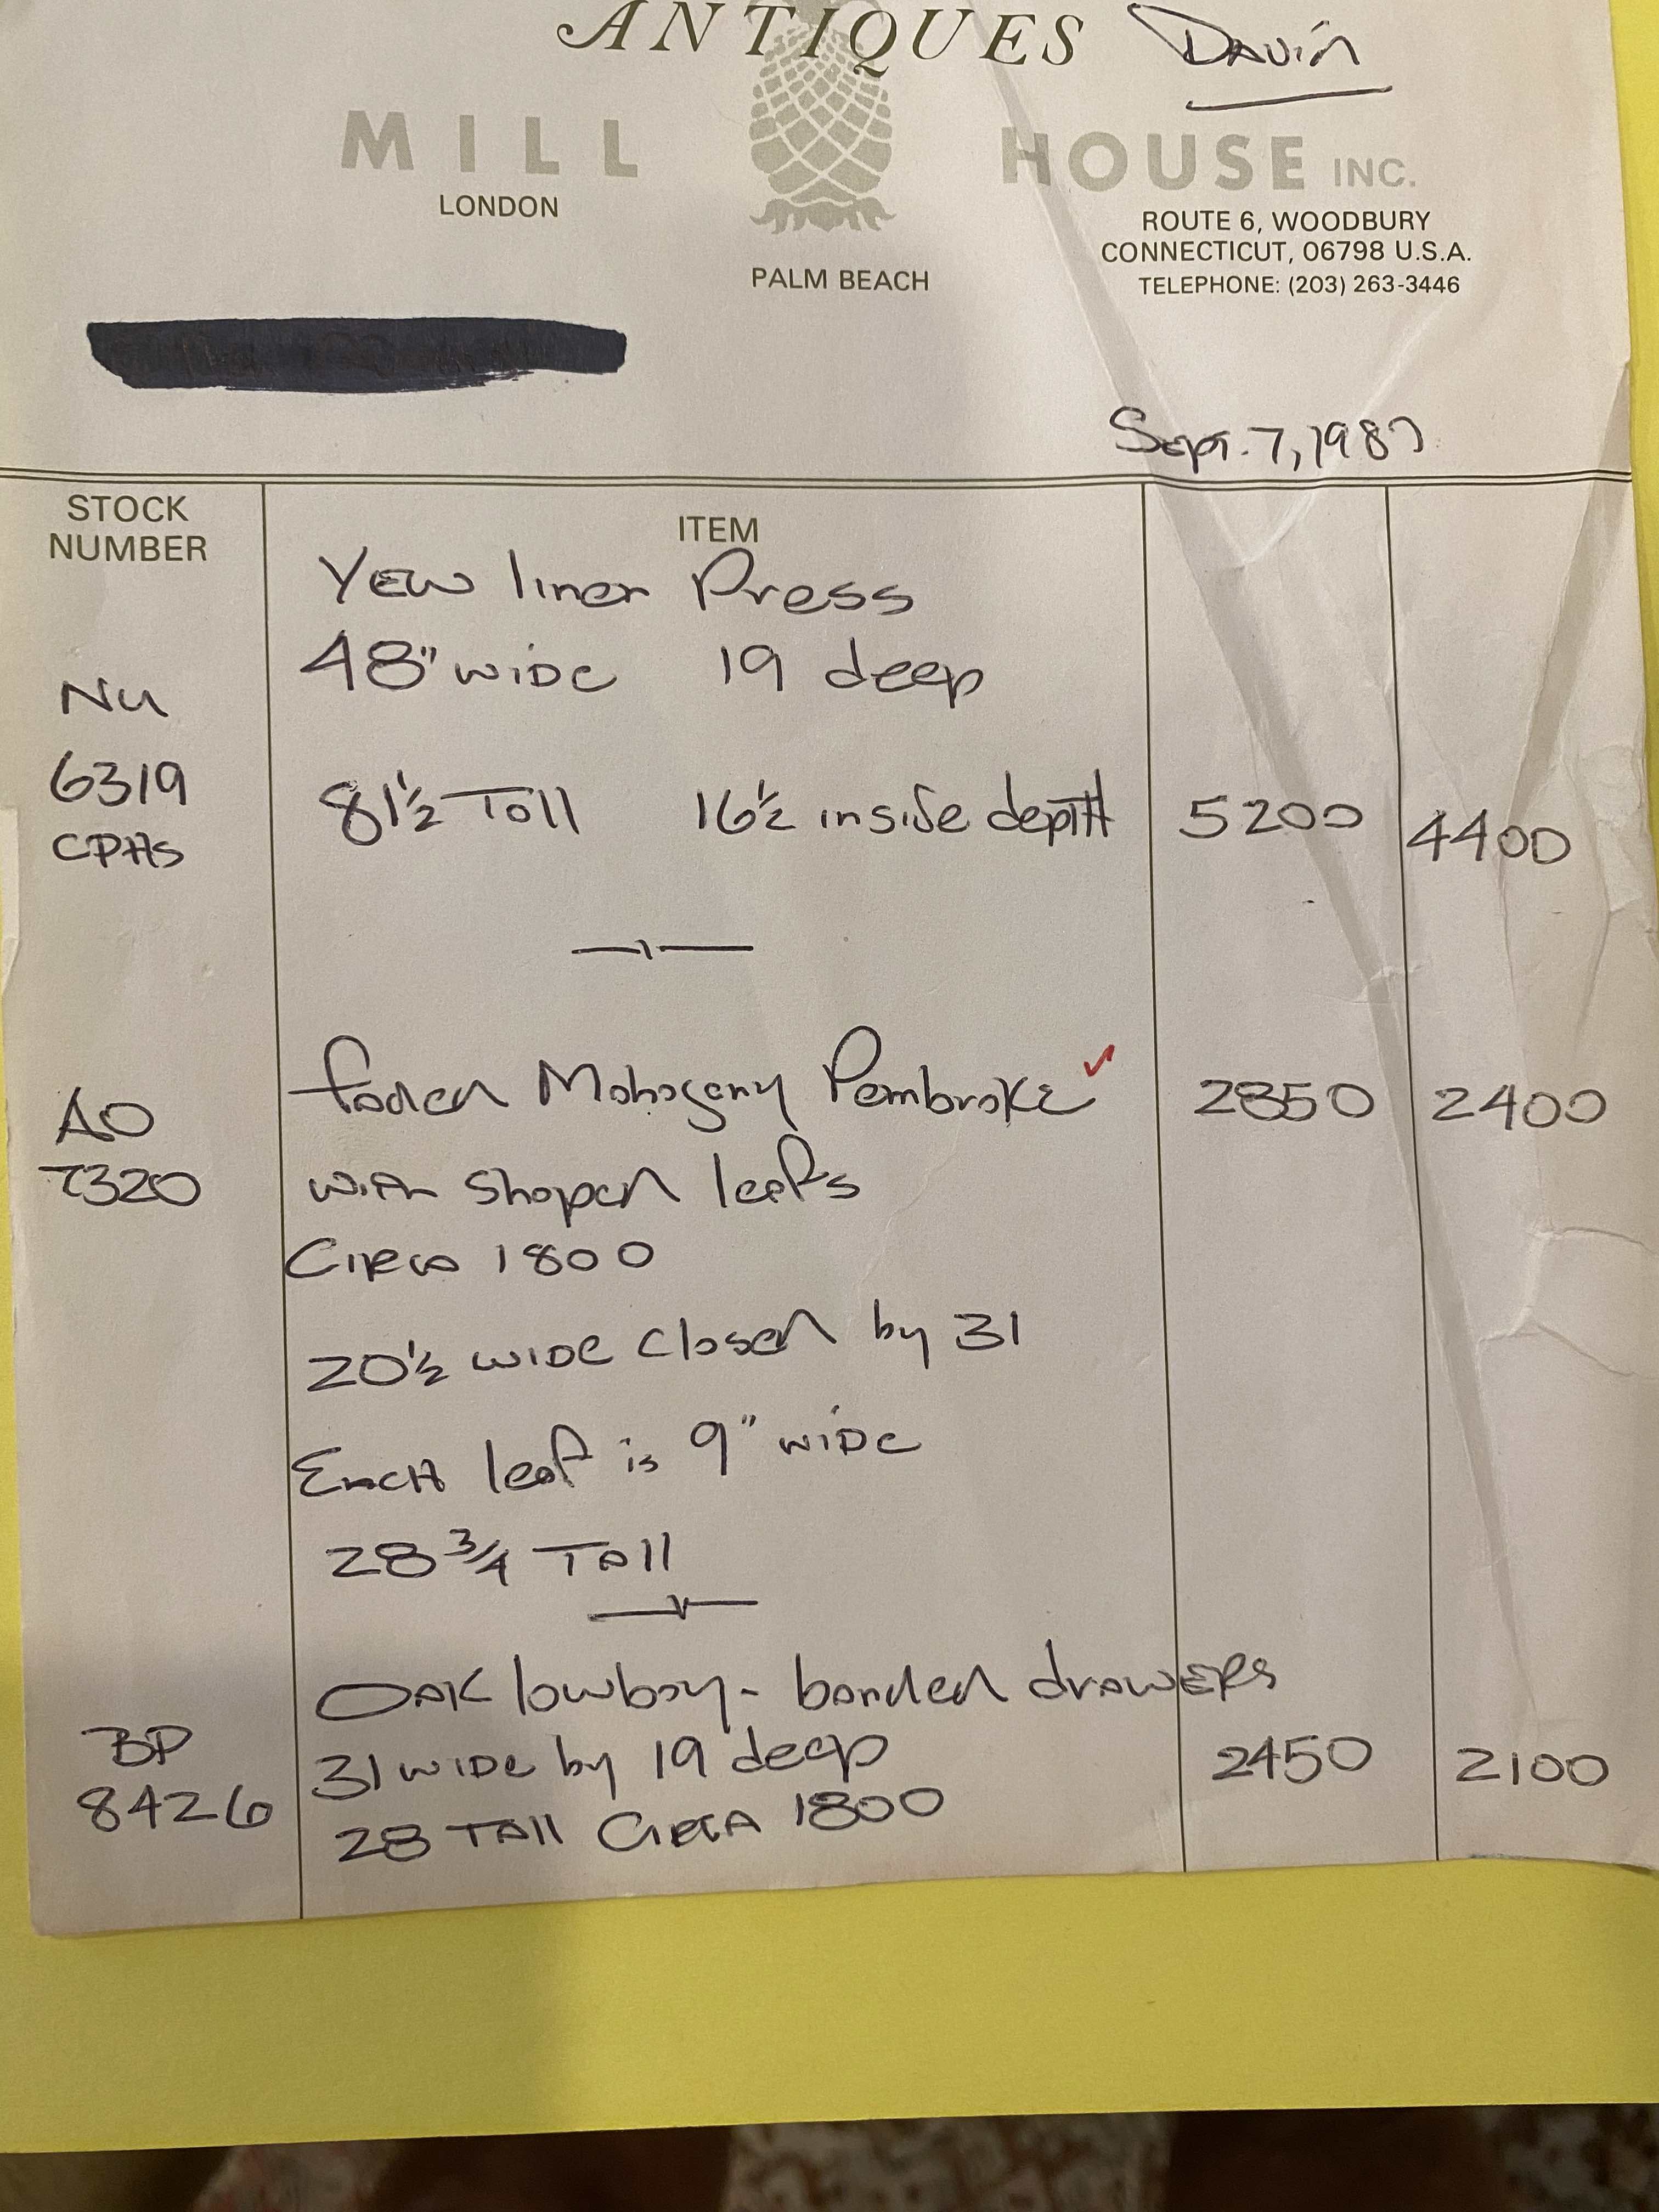 ANTIQUES
David
MILL HOUSE INC.
LONDON
PALM BEACH
ROUTE 6, WOODBURY
CONNECTICUT, 06798 U.S.A.
TELEPHONE: (203) 263-3446
Sept. 7, 1987
STOCK NUMBER
ITEM
Yew linen Press
48" wide 19 deep
Nu
6319
CPHS
81½ Tall 16½ inside depth 5200 4400
faded Mahogany Pembroke ✓ 2850 2400
AO
7320
with shaped leafs
Circa 1800
20½ wide closed by 31
Each leaf is 9" wide
28¾ Tall
Oak lowboy - banded drawers
BP
8426
31 wide by 19 deep 2450 2100
28 Tall Circa 1800